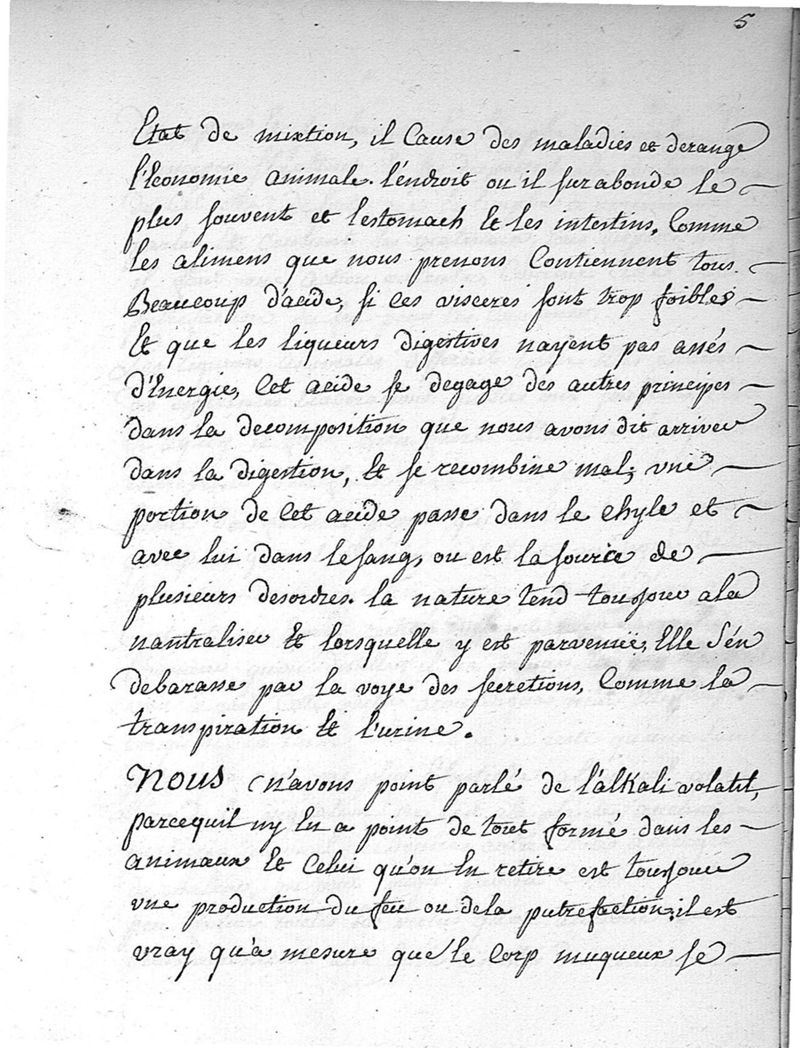 5
Etat de mixtion, il Cause des maladies et derange
l'économie animale. l'endroit ou il surabonde le
plus souvent et lestomach et les intestins, Comme
les alimens que nous prenons Contiennent tous
Beaucoup d'acide, si ces visceres sont trop foibles
Et que les liqueurs digestives nayent pas assés
d'Energie, Cet acide se degage des autres principes
dans la decomposition que nous avons dit arriver
dans la digestion, Et se recombine mal; vne
portion de Cet acide passe dans le chyle et
avec lui dans le sang, ou est la source de
plusieurs desordres. la nature tend toujour ala
nautraliser Et lorsquelle y est parvenüe, Elle s'én
debarasse par la voye des secretions, Comme la
transpiration Et l'urine.
Nous n'avons point parlé de l'álkali volatil,
parcequil ny En a point de tout formé dans les
animaux Et Celui qu'on En retire est toujour
vne production du feu ou dela putrefaction; il est
vray qu'a mesure que le Corp muqueux se